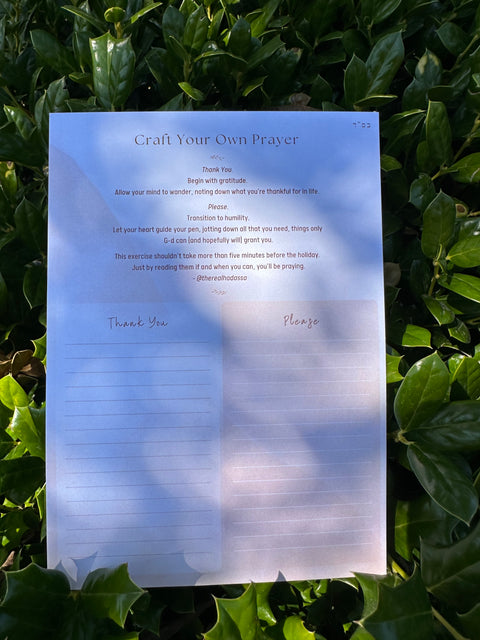 בס"ד
Craft Your Own Prayer
Thank You.
Begin with gratitude.
Allow your mind to wander, noting down what you're thankful for in life.
Please.
Transition to humility.
Let your heart guide your pen, jotting down all that you need, things only
G-d can (and hopefully will) grant you.
This exercise shouldn't take more than five minutes before the holiday.
Just by reading them if and when you can, you'll be praying.
- @therealhadassa
Thank You
Please